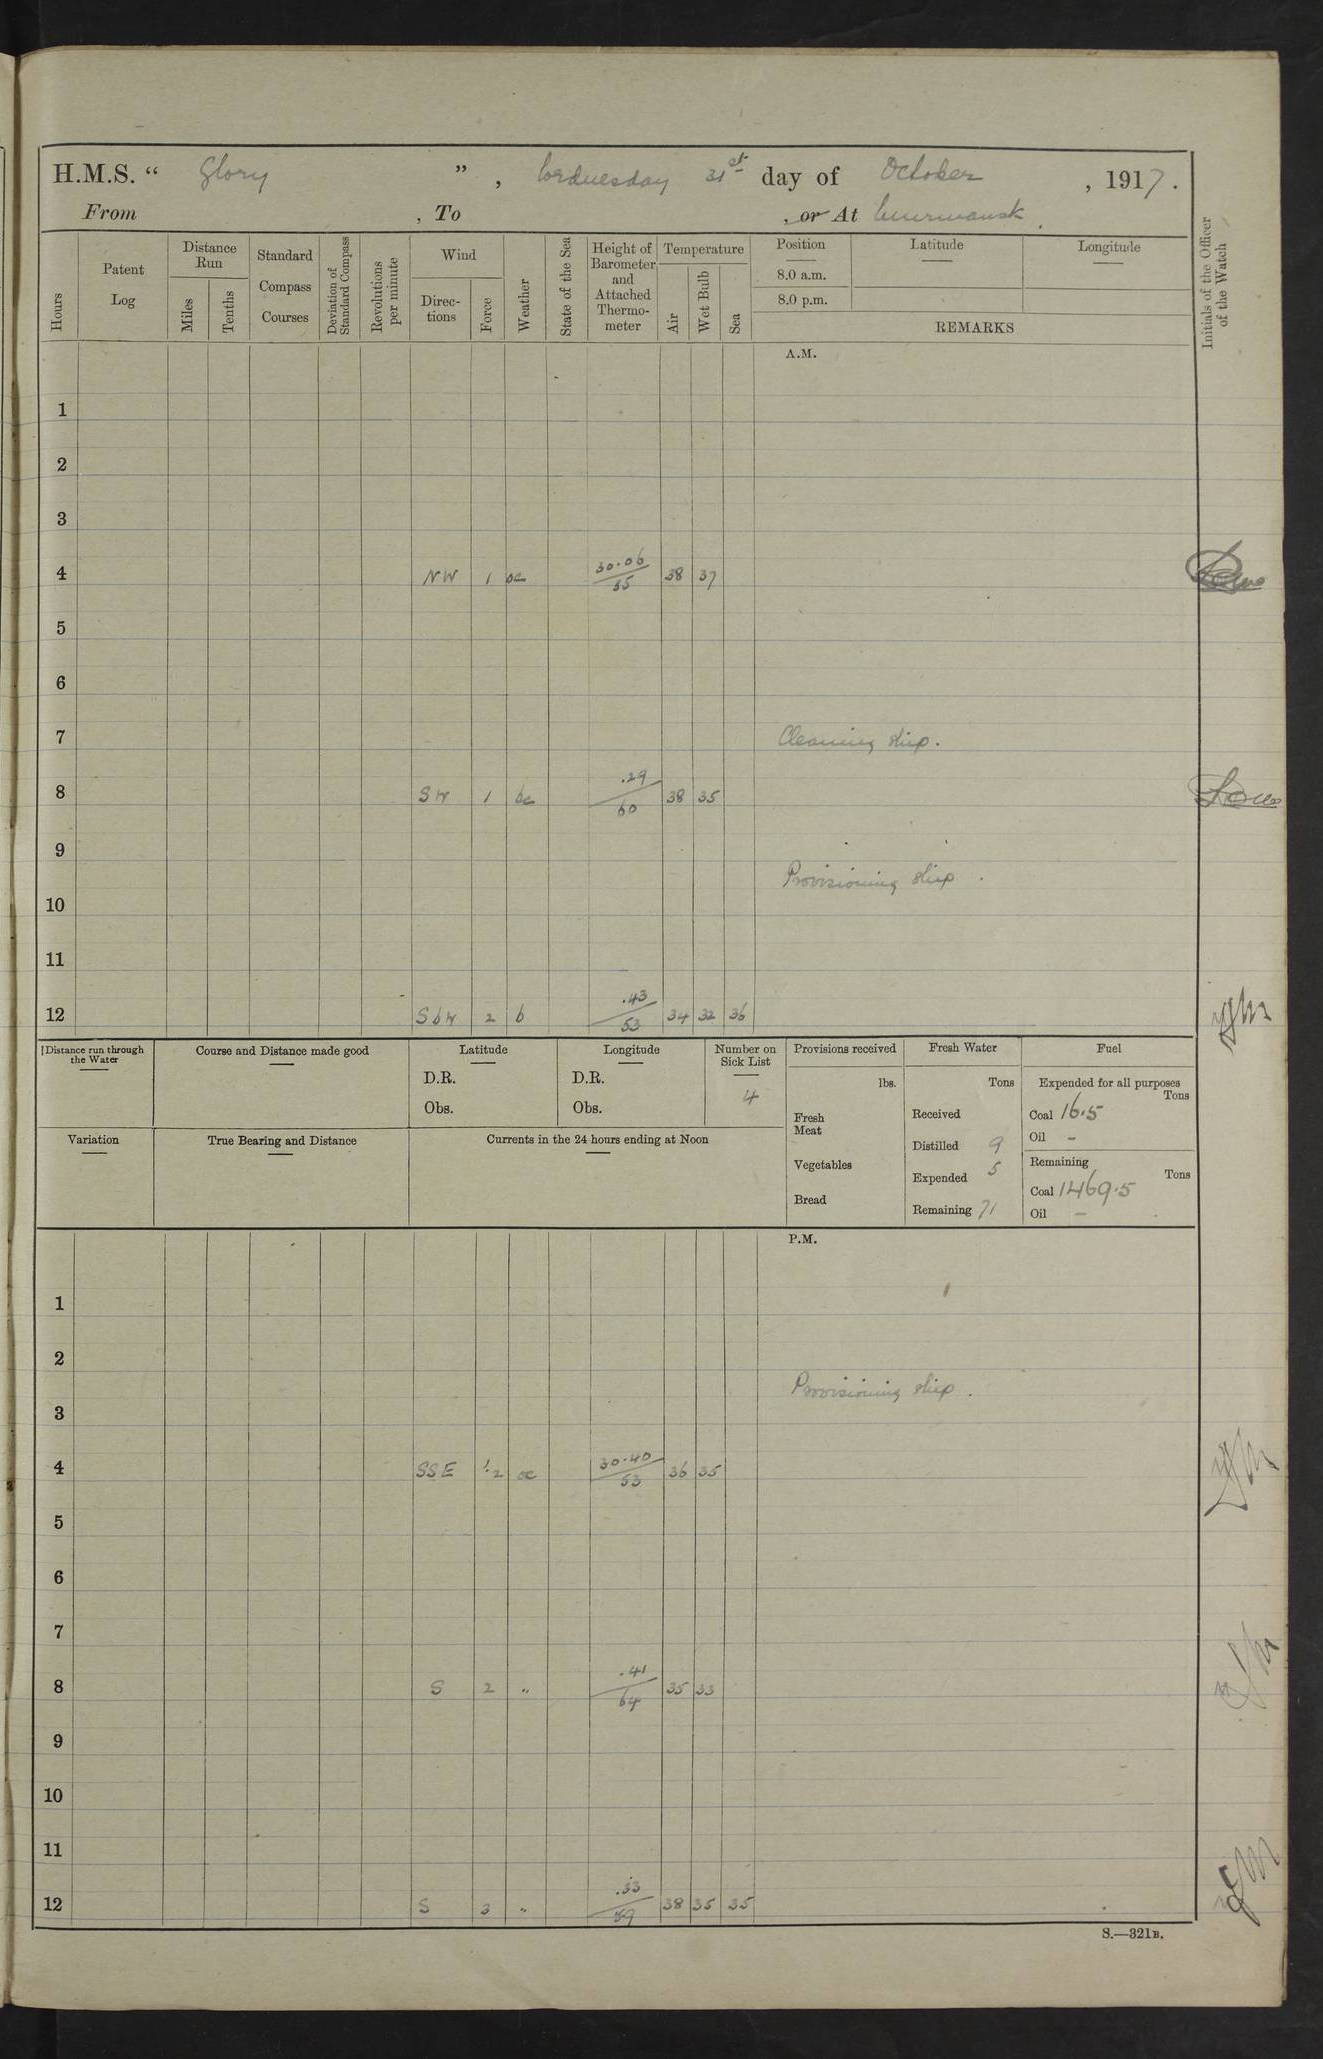 H.M.S. “ Glory ” , Wednesday 31st day of October , 1917.
From , To , or At Murmansk.
Hours
Patent Log
Distance Run
Miles
Tenths
Standard Compass Courses
Deviation of Standard Compass
Revolutions per minute
Wind
Directions
Force
Weather
State of the Sea
Height of Barometer and Attached Thermometer
Temperature
Air
Wet Bulb
Sea
Position
8.0 a.m.
8.0 p.m.
Latitude
Longitude
REMARKS
Initials of the Officer of the Watch
A.M.
1
2
3
4 NW 1 oc 30.06/55 38 37
5
6
7 Cleaning ship.
8 SW 1 bc .29/60 38 35
9
Provisioning ship.
10
11
12 SbW 2 b .43/53 34 32 36
Distance run through the Water
Course and Distance made good
Latitude
D.R.
Obs.
Longitude
D.R.
Obs.
Number on Sick List
4
Provisions received
lbs.
Fresh Meat
Vegetables
Bread
Fresh Water
Tons
Received
Distilled 9
Expended 5
Remaining 71
Fuel
Expended for all purposes
Tons
Coal 16.5
Oil -
Remaining
Tons
Coal 1469.5
Oil -
Variation
True Bearing and Distance
Currents in the 24 hours ending at Noon
P.M.
1
2
Provisioning ship.
3
4 SSE 1.2 oc 30.40/53 36 35
5
6
7
8 S 2 „ .41/64 35 33
9
10
11
12 S 3 „ .33/59 38 35 35
S.—321B.